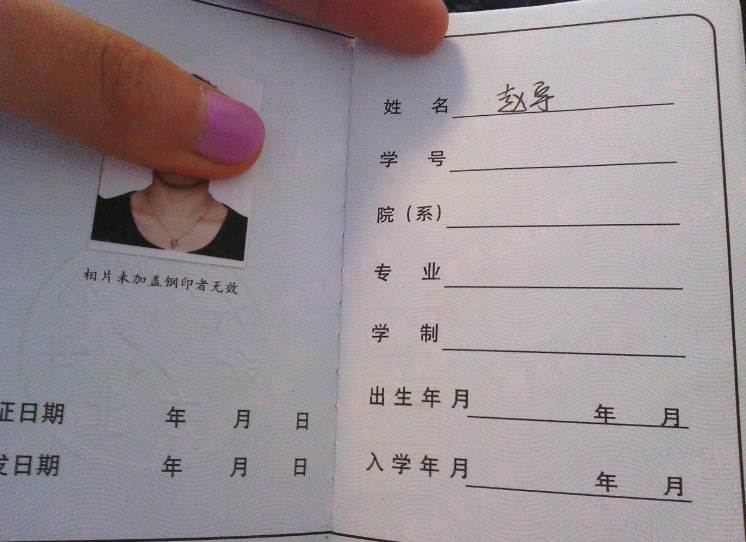 相片未加盖钢印者无效
证日期 年 月 日
发日期 年 月 日
姓名 赵导
学号
院（系）
专业
学制
出生年月 年 月
入学年月 年 月